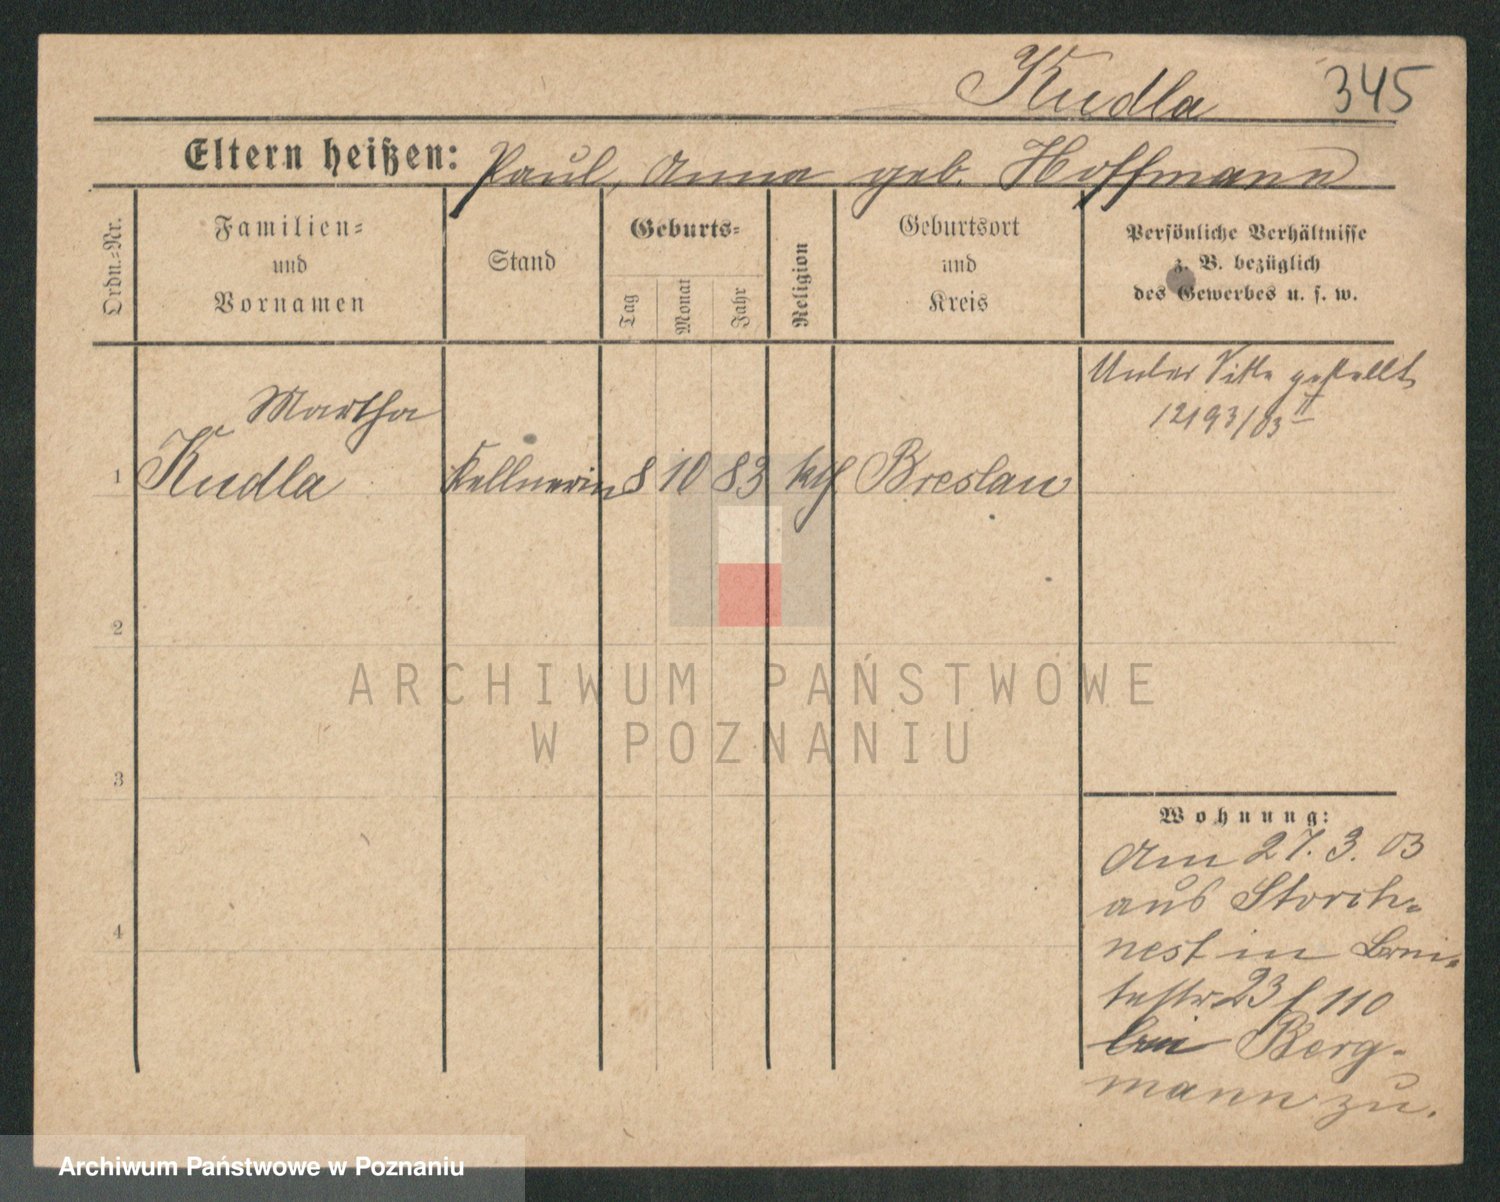 Kudla 345
Eltern heißen: Paul, Anna geb. Hoffmann
Ordn.-Nr.
Familien-
und
Vornamen
Stand
Geburts-
Tag
Monat
Jahr
Religion
Geburtsort
und
Kreis
Persönliche Verhältnisse
z. B. bezüglich
des Gewerbes u. s. w.
Unter Sitte gestellt
12193/03 II
Martha
1 Kudla Kellnerin 8 10 83 kth. Breslau
2
3
4
Wohnung:
Am 27. 3. 03
aus Storch-
nest in Brei-
testr 23 f 110
bei Berg-
mann zu.
ARCHIWUM PAŃSTWOWE
W POZNANIU
Archiwum Państwowe w Poznaniu